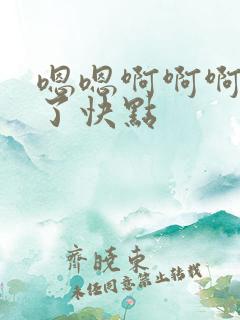 嗯嗯啊啊啊
了快點
齊曉東
未经同意禁止转载